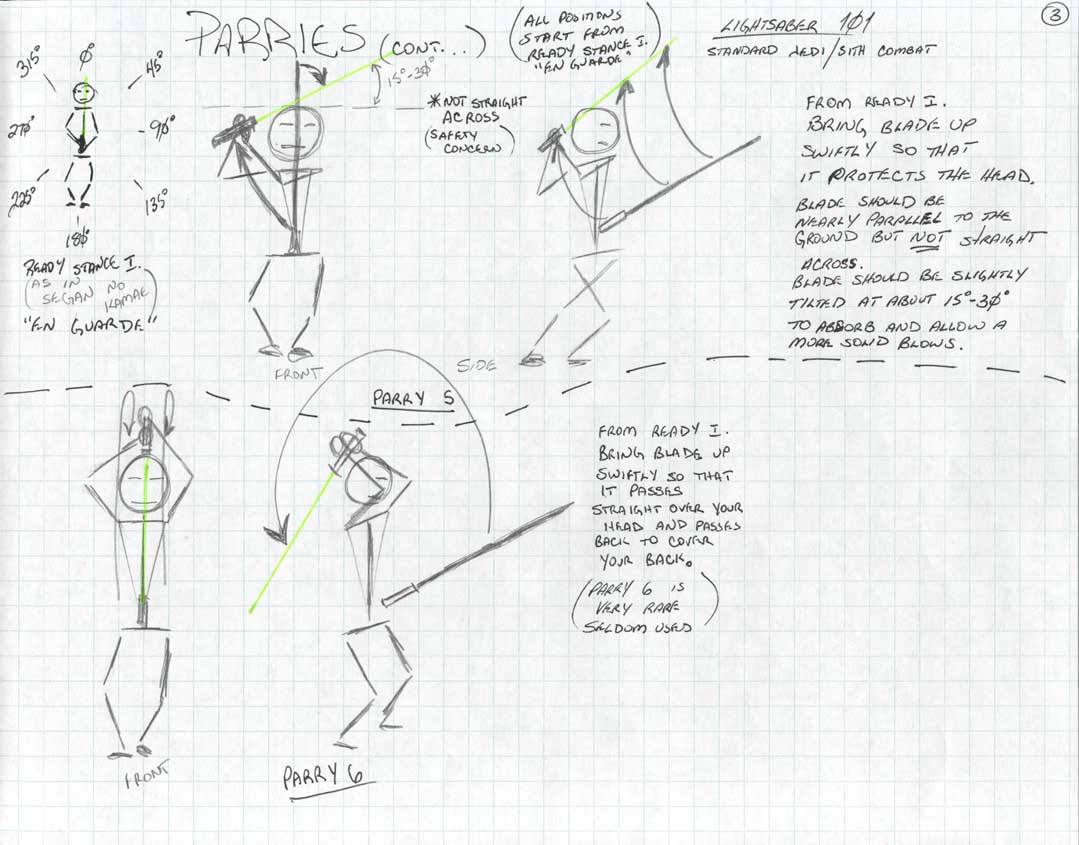 3
PARRIES (CONT...)
(ALL POSITIONS
START FROM
READY STANCE I.
"EN GUARDE")
LIGHTSABER 101
STANDARD JEDI/SITH COMBAT
0°
45°
90°
135°
180°
225°
270°
315°
READY STANCE I.
(AS IN
SEGAN NO
KAMAE)
"EN GUARDE"
15°-30°
*NOT STRAIGHT
ACROSS
(SAFETY
CONCERN)
FRONT
SIDE
FROM READY I.
BRING BLADE UP
SWIFTLY SO THAT
IT PROTECTS THE HEAD.
BLADE SHOULD BE
NEARLY PARALLEL TO THE
GROUND BUT NOT STRAIGHT
ACROSS.
BLADE SHOULD BE SLIGHTLY
TILTED AT ABOUT 15°-30°
TO ABSORB AND ALLOW A
MORE SOLID BLOWS.
PARRY 5
FROM READY I.
BRING BLADE UP
SWIFTLY SO THAT
IT PASSES
STRAIGHT OVER YOUR
HEAD AND PASSES
BACK TO COVER
YOUR BACK.
(PARRY 6 IS
VERY RARE
SELDOM USED)
FRONT
PARRY 6